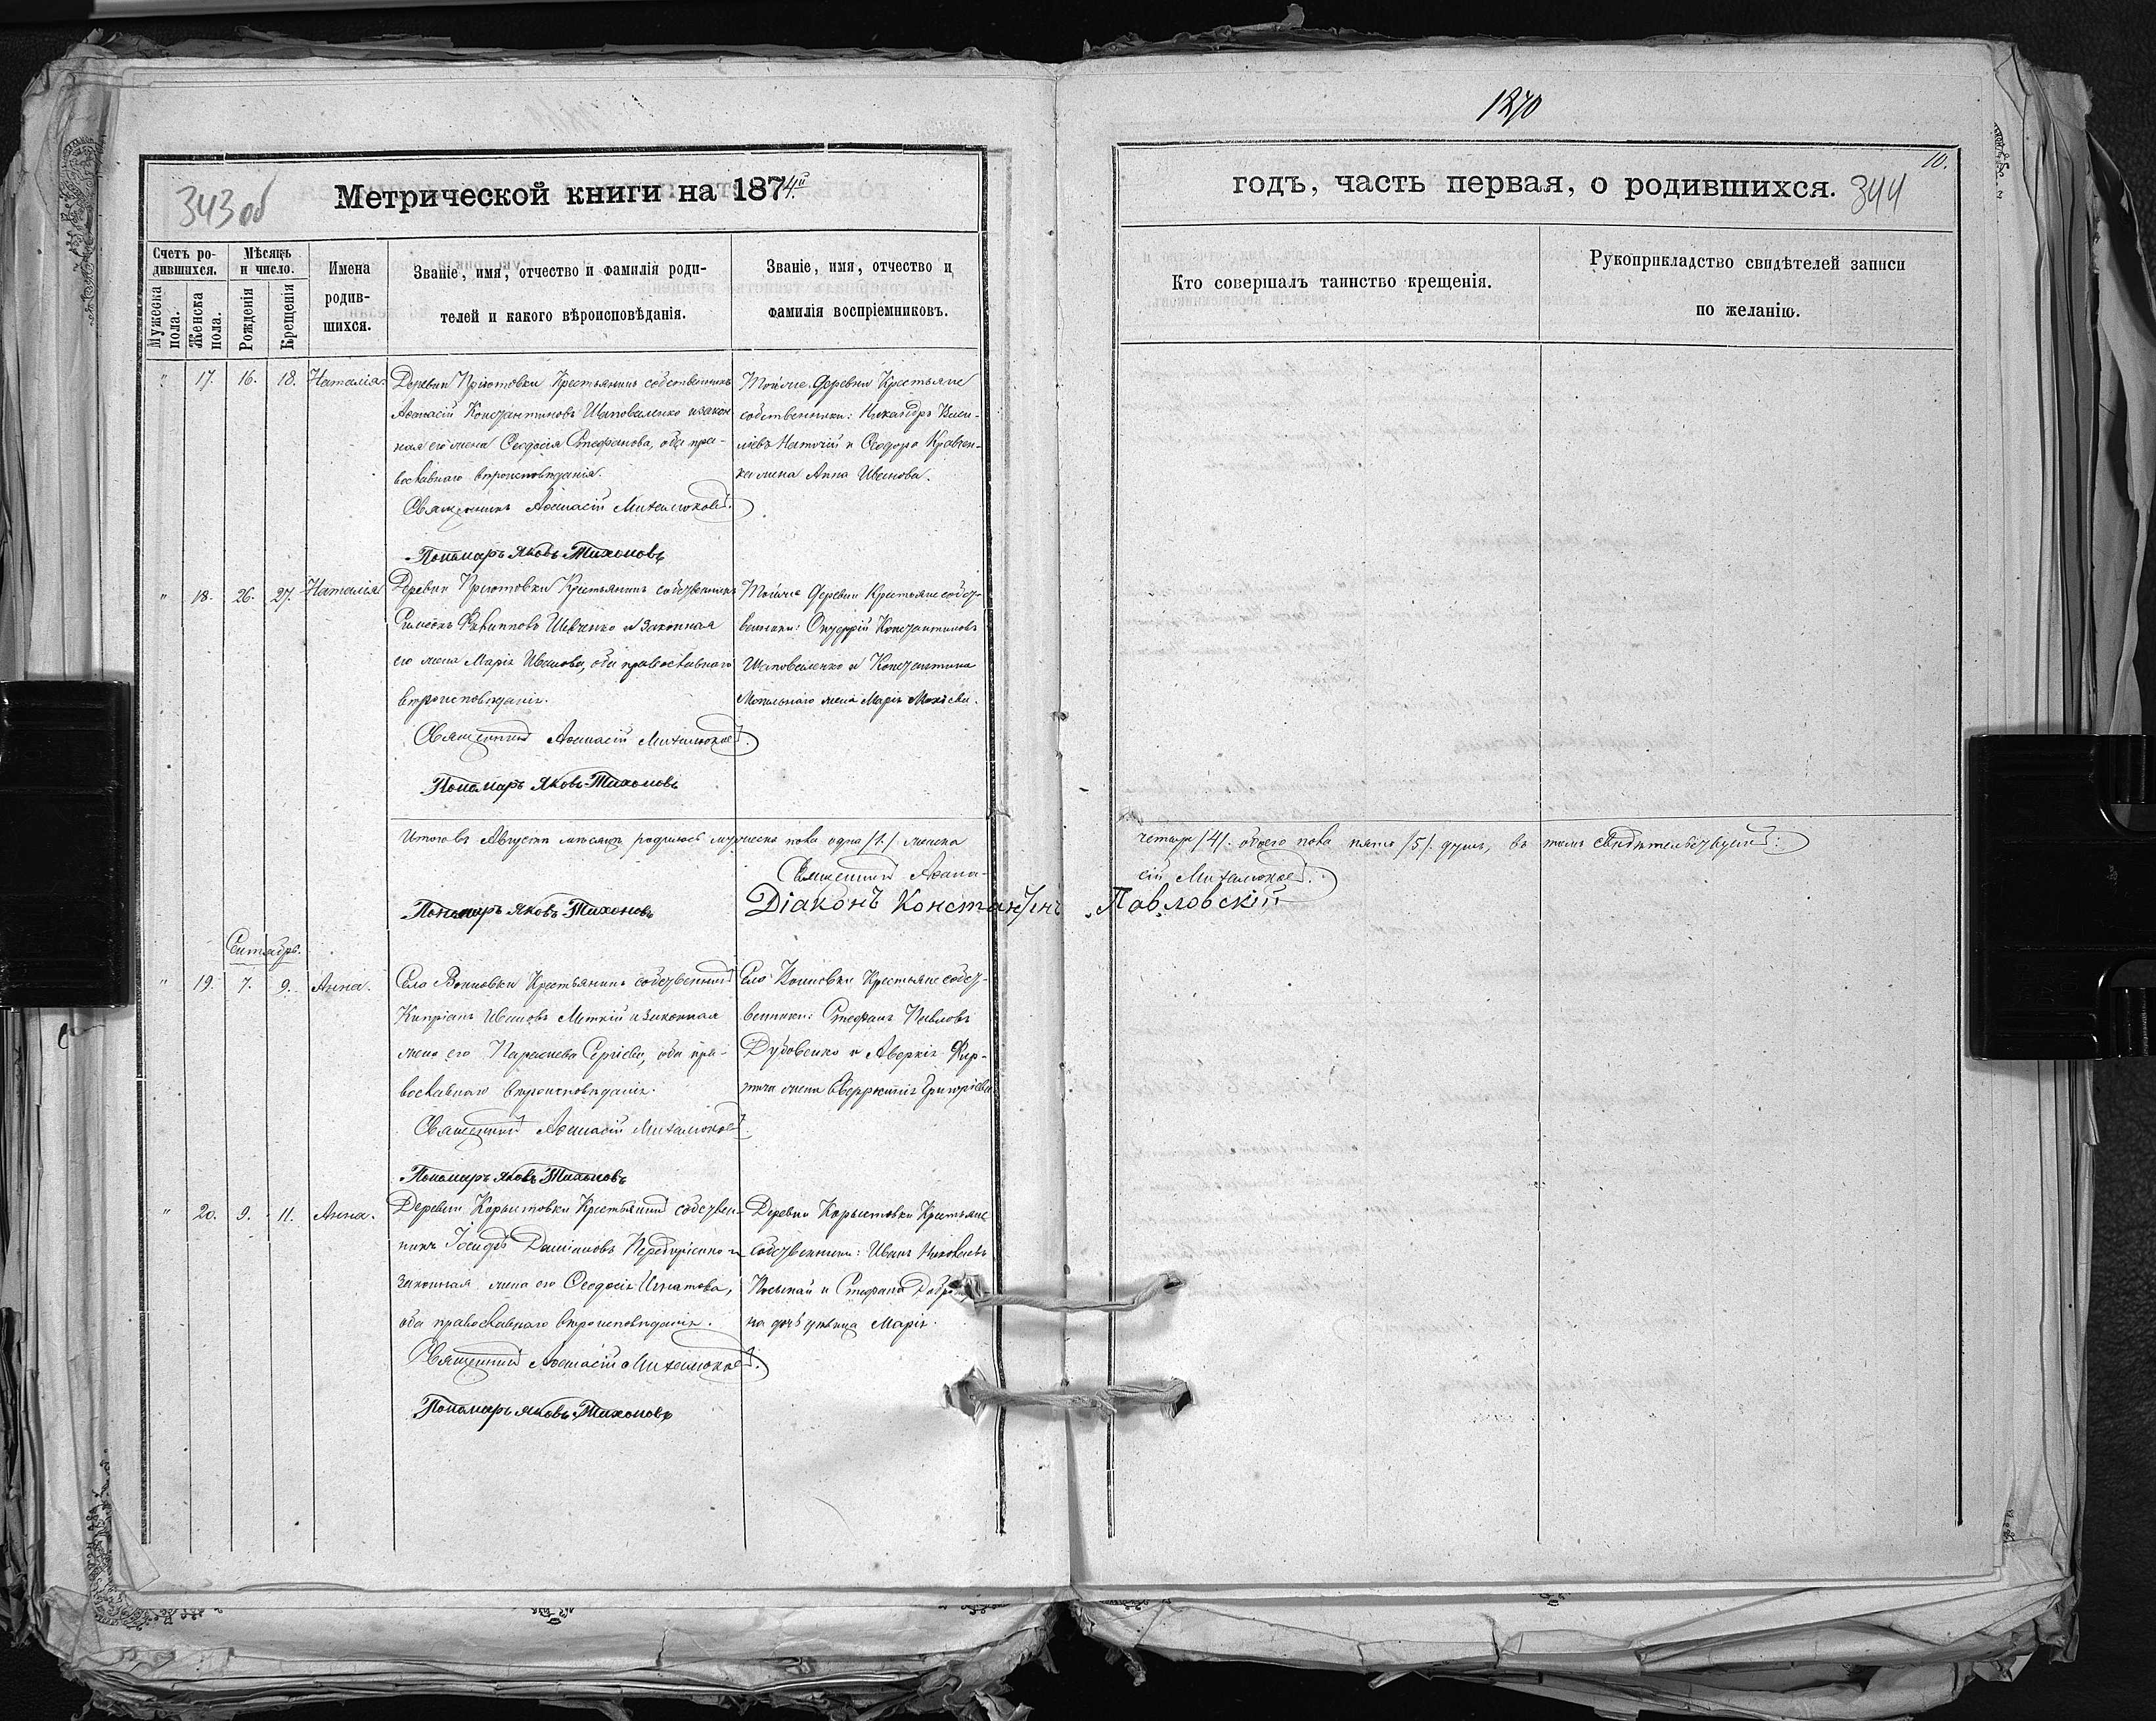 1270
10.
343 об
Метрической книги на 1874й
годъ, часть первая, о родившихся.
344
Счетъ ро-
дившихся.
Мужеска
пола.
Женска
пола.
Мѣсяцъ
и число.
Рожденія
Крещенія
Имена
родив-
шихся.
Званіе, имя, отчество и фамилія роди-
телей и какого вѣроисповѣданія.
Званіе, имя, отчество и
фамилія воспріемниковъ.
Кто совершалъ таинство крещенія.
Рукоприкладство свидѣтелей записи
по желанію.
" 17. 16. 18. Наталія.
Деревни Пріютовки Крестьянинъ собственникъ
Аѳанасій Константиновъ Шаповаленко и закон
ная его жена Ѳеодосія Стефанова, оба пра-
вославнаго вѣроисповѣданія.
Священникъ Аѳанасій
Пономарь Яковъ Тихоновъ
Тойже деревни Крестьяне
собственники: Никандръ Васи-
ліевъ и Ѳеодора Кравчен-
ка жена Анна Иванова.
" 18. 26. 27. Наталія
Деревни Пріютовки Крестьянинъ собственникъ
Симеонъ Филипповъ Шевченко и законная
его жена Марія Иванова, оба православнаго
вѣроисповѣданія.
Священникъ Аѳанасій
Пономарь Яковъ Тихоновъ
Тойже деревни Крестьяне собст-
венники: Онуфрій Константиновъ
Шаповаленко и Константина
жена Марія
Итого въ Августѣ мѣсяцѣ родилось мужеска пола одна /1/ женска
четыре /4/. обоего пола пять /5/. душъ, въ томъ свидѣтельствуемъ:
Священникъ Аѳана-
сій
Пономарь Яковъ Тихоновъ
Діаконъ Константинъ Павловскій
Сентябрь.
" 19. 7. 9. Анна.
Села Воиновки Крестьянинъ собственникъ
Кипріанъ Ивановъ и законная
жена его Параскева Сергіева, оба пра-
вославнаго вѣроисповѣданія.
Священникъ Аѳанасій
Пономарь Яковъ Тихоновъ
Села Воиновки Крестьяне собст-
венники: Стефанъ Павловъ
Дубовенко и Аверкія
жена Григоріева
" 20. 9. 11. Анна.
Деревни Корыстовки Крестьянинъ собствен-
никъ Іосифъ Даміановъ и
законная жена его Ѳеодосія Игнатова,
оба православнаго вѣроисповѣданія.
Священникъ Аѳанасій
Пономарь Яковъ Тихоновъ
Деревни Корыстовки Крестьяне
собственники: Иванъ
и Стефана
на дочь дѣвица Марія.